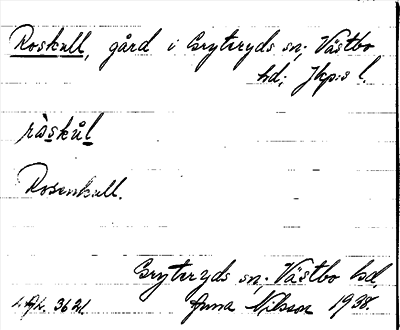 Roskull, gård i Gryteryds sn; Västbo
hd; Jkp:s l.
råskul
Rosenkull.
Gryteryds sn; Västbo hd,
3621. Anna Nilsson 1938.